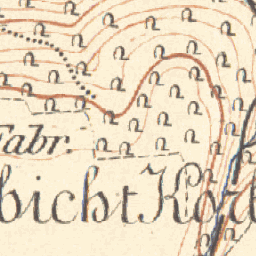 Fabr.
bicht Kor